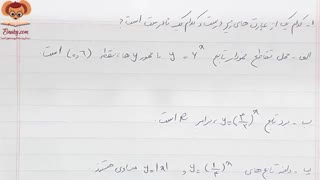 Elmday.com
۱- کدام یک از عبارت های زیر درست و کدام یک نادرست است؟
الف - محل تقاطع نمودار تابع y = 2^x با محور yها، نقطه (0,1) است
ب - برد تابع y = (3/2)^x، برابر R است.
پ - دامنه تابع های y = (1/2)^x و y = |x| مساوی هستند